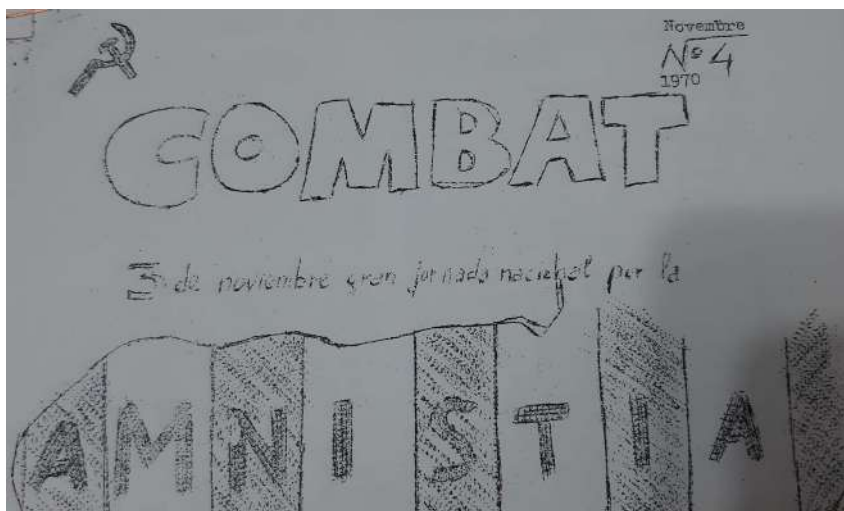 Novembre
Nº 4
1970
COMBAT
3 de noviembre gran jornada nacional por la
AMNISTIA